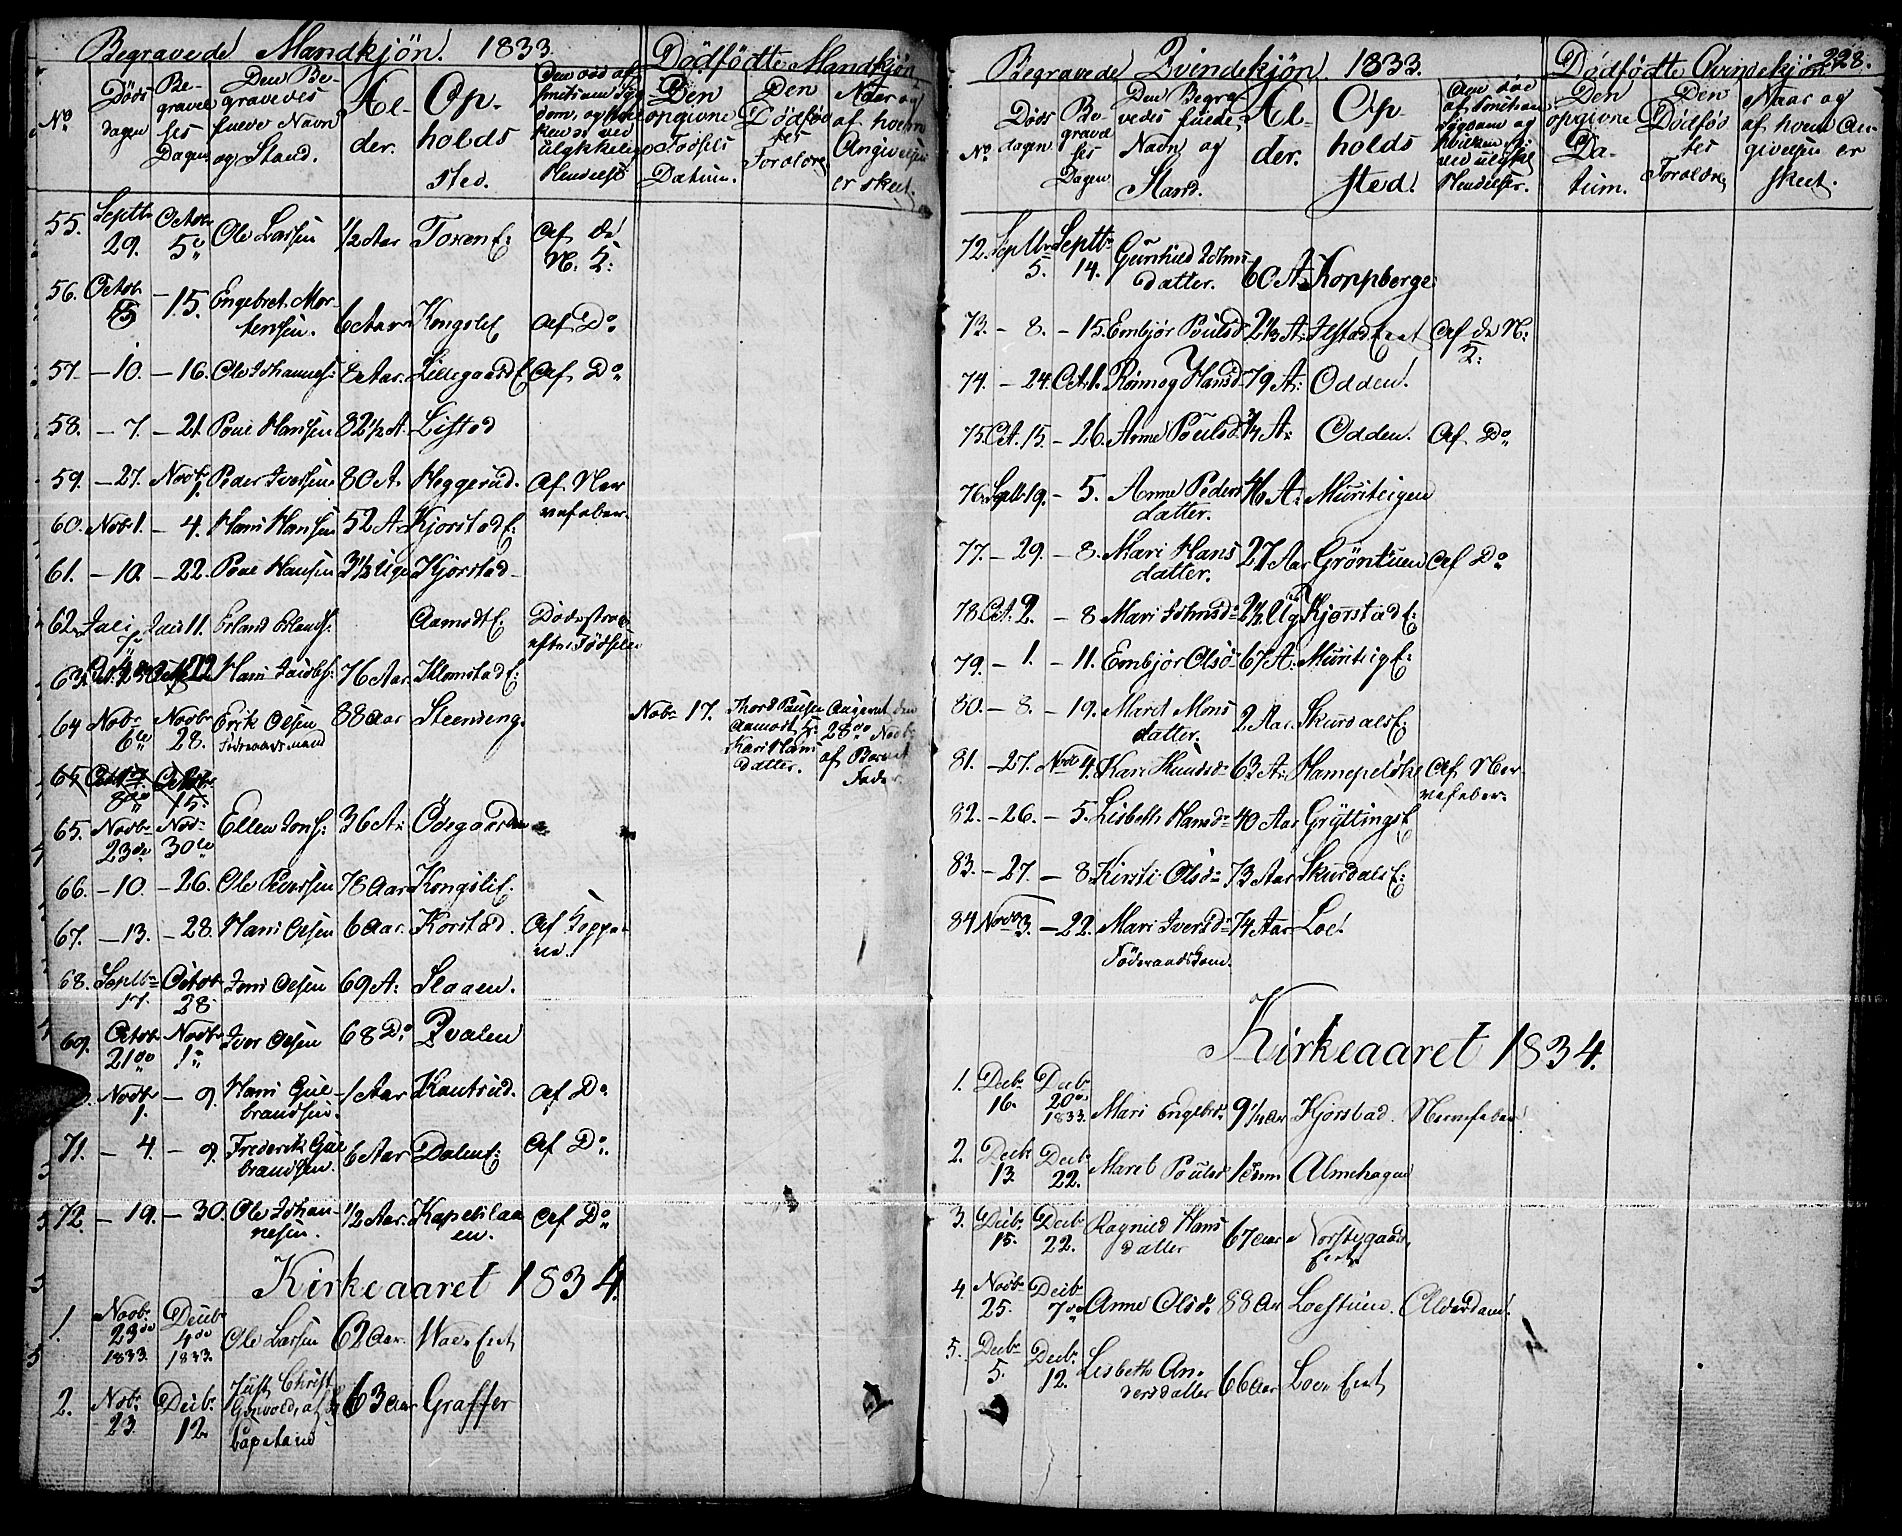 Begravede Mandkjön. 1833.
Dödfödte Mandkjön
No
Döds dagen
Be- gravel ses Dagen
Den Be- gravedes fulde Navn og Stand.
Al- der.
Op- holds sted.
Den opgivne Födsels Datum.
Den Dödfød tes Forældre
Naar og af hvem Angivelsen er skeet.
55. Septbr 29. Octobr 5te Ole Larsen 1/2 Aar Toxen E: Af do N. F:
56. Octobr 15. Engebret Mor- tensen. 6 Aar Kongslie Af Do
57. - 10. - 16. Ole Johannes: 8 Aar. Lillegaard E Af Do
58. - 7. - 21. Poul Hansen 82 1/2 A. Listad
59. - 27. Novbr 1. Peder Iversen 80 A. Heggerud. Af Ner vefeber.
60. Nov. 1. - 4. Hans Hansen 52 A. Kjorstad E:
61. - 10. - 22. Poul Hansen 3 1/2 Uge Kjorstad
62. Juli Juli 11. Erland Erlands: Aamodt E. Döde strax efter Födselen
63. Hans Jacobs: 76 Aar. Klomstad E:
64 Novbr 6te Novbr 28. Erik Olsen Föderaadsmand 88 Aar Steenseng.
Novbr 17. Thord Paulsen Aamodt E: Kari Hans datter. Angivet den 28de Novbr af Barnets Fader
65. Octobr 15.
65. Novbr 23de Nov: 30te Ellev Jons: 36 A: Ödegaarden
66. - 10. - 26. Ole Pedersen 78 Aar Kongslie.
67. - 13. - 28. Hans Olsen 6 Aar. Korstad. Af Koppe- ne.
68. Septbr 17. Octobr 28 Jens Olsen 69 A: Slaaen.
69. Octobr 21de Novbr 1. Iver Olsen 68 Do Qvalen
Novbr 1. - 9. Hans Gul- brandsen. 1 Aar Kantrud. Af Do
71. - 4. - 9. Frederik Gul brandsen 6 Aar Dalen E: Af Do.
72 - 19. - 30. Ole Johan- nesen. 1/2 Aar. Kapelslaa en. Af Do
Kirkeaaret 1834.
1. Novbr 23de 1833. Decbr 4de 1833. Ole Larsen 62 Aar. Eiet
2. Nobr. 23. Decbr. 12. Just Christ 63 Aar Graffer
Begravede Qvindekjön 1833.
Dödfödte Qvindekjön
228.
No
Döds dagen
Be- gravel ses Dagen
Den Begra vedes fulde Navn og Stand.
Al- der.
Op- holds sted.
Den opgivne Da- tum.
Den Dödfød tes Forældre
Naar og af hvem An- givelsen er skeet.
72. Septbr 5. Septbr 14. Gunhild Johns datter. 60 A: Kornberge
73. - 8. - 15. Embjör Poulsd: 2 1/2 A: Ilstad Eiet Af do N: F:
74. - 24. Oct. 1. Rönnog Hansd: 79 A: Odden.
75. Oct. 15 - 26. Anne Poulsd: A: Odden. Af Do
76. Septbr 19. - 5. Anne Peders datter. A: Muusteigen
77. - 29. - 8. Mari Hans datter. 27 Aar Gröntuen Af Do
78. Oct. 2. - 8 Mari Johnsd: 2 1/2 Ug Kjørstad E:
79. - 1. - 11. Embjör Olsd 67 A: Muusteig E:
80. - 8. - 19. Marit Mons datter. 2 Aar. Skurdals E:
81. - 27. Novb 4. Kari Knudsd: 63 A: Hamepeløkke Af Ner- vefeber.
82. - 26. - 5. Lisbeth Hansd: 40 Aar Gryttings E
83. - 27. - 8. Kirsti Olsd: 73 Aar Skurdals E:
84 Novb 3. - 22. Mari Iversd: Föderaadskone. 74 Aar Loe.
Kirkeaaret 1834.
1. Decbr 16. Decbr 20de 1833. Mari Engebrd: 9 1/4 Aar Kjorstad. Nervefeber.
2. Decbr 13 Decbr 22. Marit Poulsd: Almehagen
3. Decbr. 15. Decbr 22. Ragnild Hans datter 67 Aar Eiet
4. Novbr 25. Decbr 7de Anne Olsd: 88 Aar Loestuen. Alderdom.
5. Decbr 5. Decbr. 12. Lisbeth An- dersdatter 66 Aar Loe Eiet